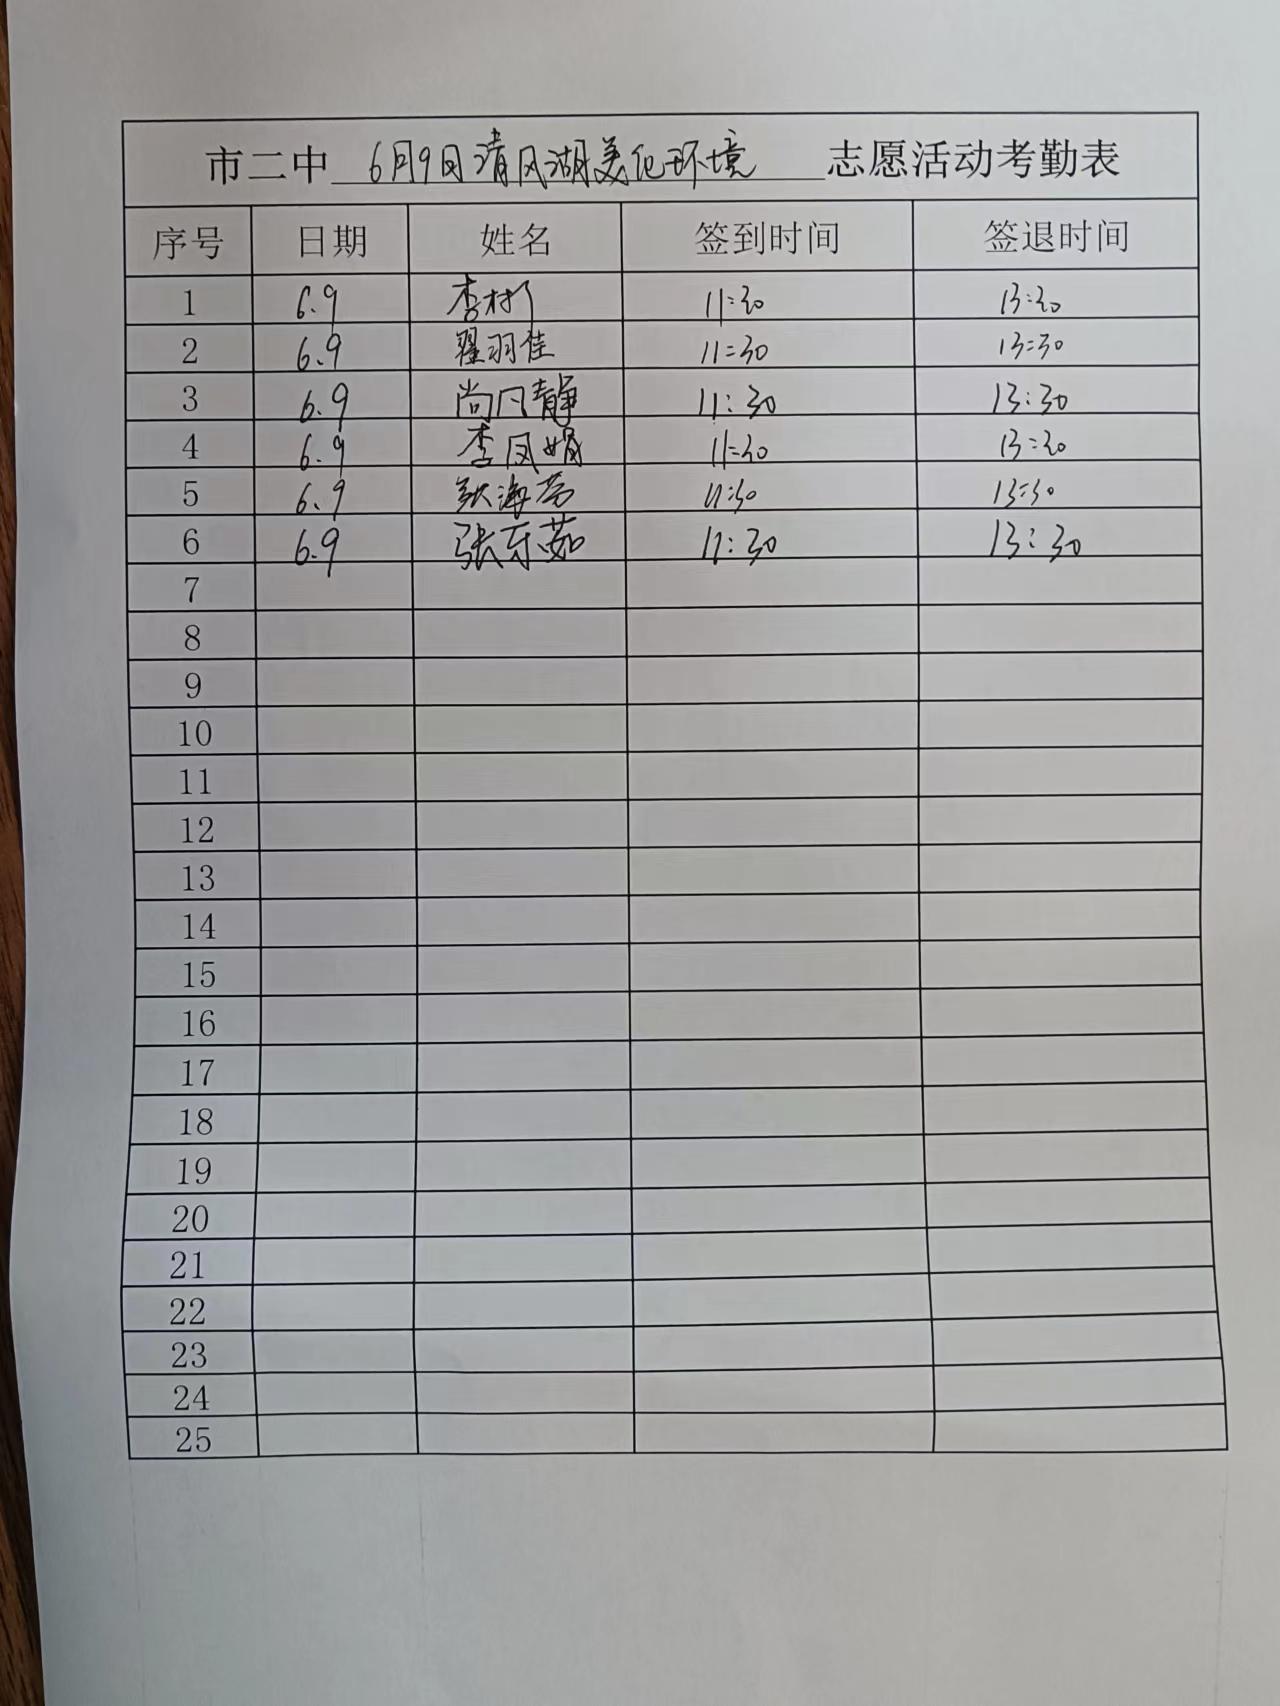 市二中 6月9日清风湖美化环境 志愿活动考勤表
序号 日期 姓名 签到时间 签退时间
1 6.9 李彬 11:30 13:30
2 6.9 翟羽佳 11:30 13:30
3 6.9 尚凡静 11:30 13:30
4 6.9 李凤娟 11:30 13:30
5 6.9 海 11:30 13:30
6 6.9 张东茹 11:30 13:30
7
8
9
10
11
12
13
14
15
16
17
18
19
20
21
22
23
24
25